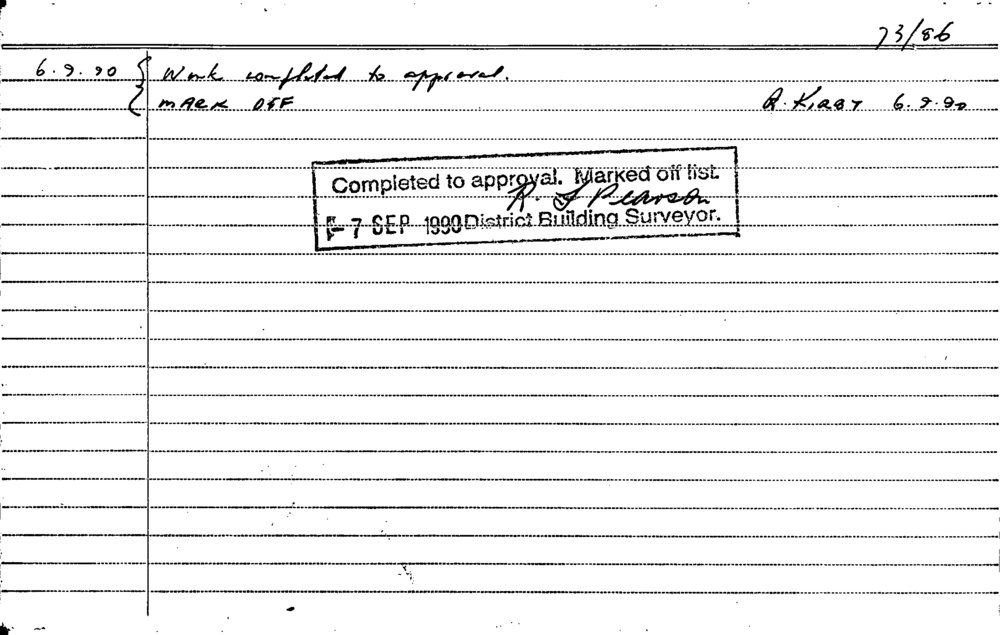 73/86
6.9.90 { Work completed to approval.
MARK OFF R. KIRBY 6.9.90
Completed to approval. Marked off list.
R. J Pearson
- 7 SEP 1990 District Building Surveyor.